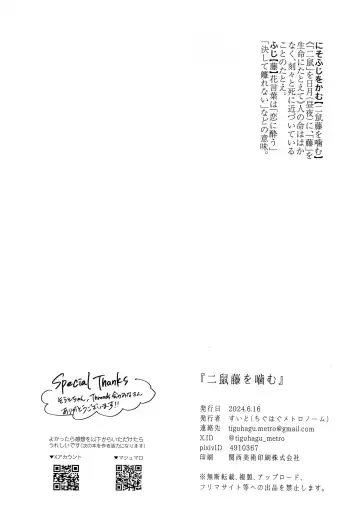 にそふじをかむ【二鼠藤を噛む】
《「二鼠」を日月（昼夜）に、「藤」を
生命にたとえて》人の命ははか
なく、刻々と死に近づいている
ことのたとえ。
ふじ【藤】花言葉は「恋に酔う」
「決して離れない」などの意味。
Special Thanks
ありがとうございます!!
よかったら感想を以下からいただけたら
うれしいです(次の本を作る活力になります)
▼Xアカウント
▼マシュマロ
『二鼠藤を噛む』
発行日 2024.6.16
発行者 すいと(ちぐはぐメトロノーム)
連絡先 tiguhagu.metro@gmail.com
X.ID @tiguhagu_metro
pixivID 4910367
印刷 関西美術印刷株式会社
※無断転載、複製、アップロード、
フリマサイト等への出品を禁止します。